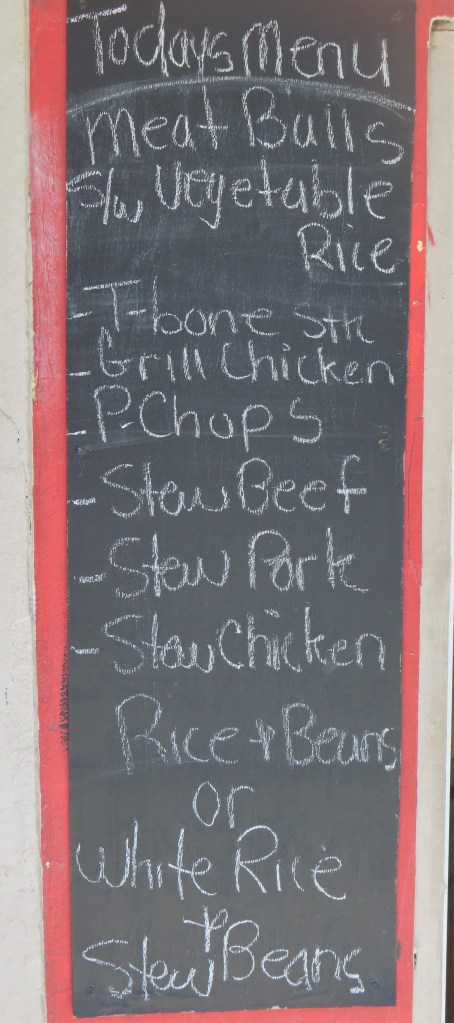 Todays Menu
Meat Balls
s/w Vegetable
Rice
- T-bone Stk
- Grill Chicken
- P-Chops
- Stew Beef
- Stew Pork
- Stew Chicken
Rice & Beans
or
White Rice
&
Stew Beans